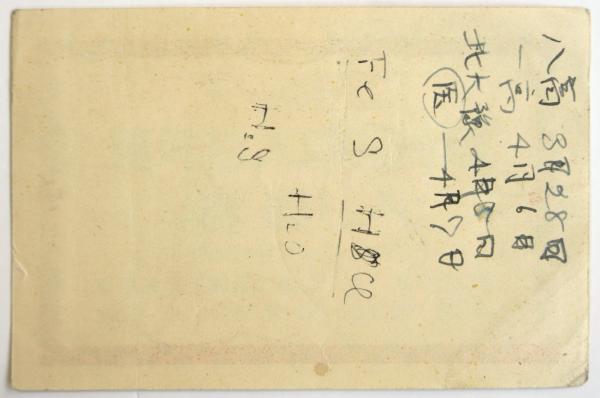 八高 3月28日
一高 4月6日
北大豫 4月
医 — 4月7日
Fe S HCl
H₂O
H₂S